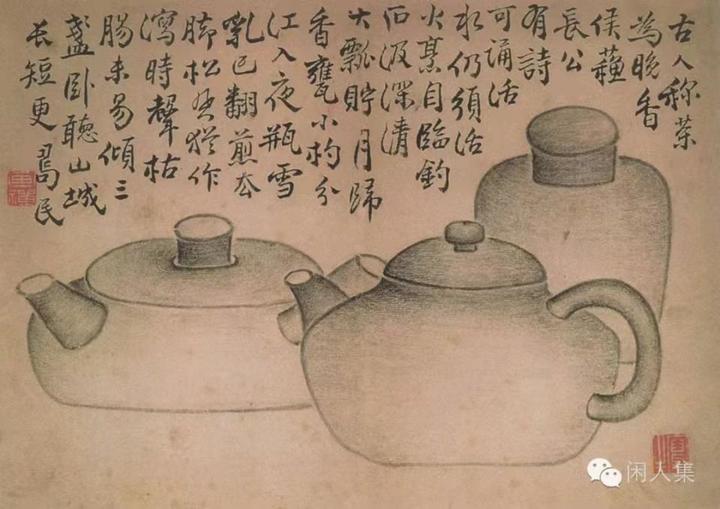 古人称茶
為晚香
侯蘓
長公
有詩
可誦活
水仍須活
火烹自臨釣
石汲深清
大瓢貯月歸
香甕小杓分
江入夜瓶雪
乳已翻煎
脚松猶作
瀉時聲枯
腸未易傾三
盞卧聽山城
长短更 民
闲人集